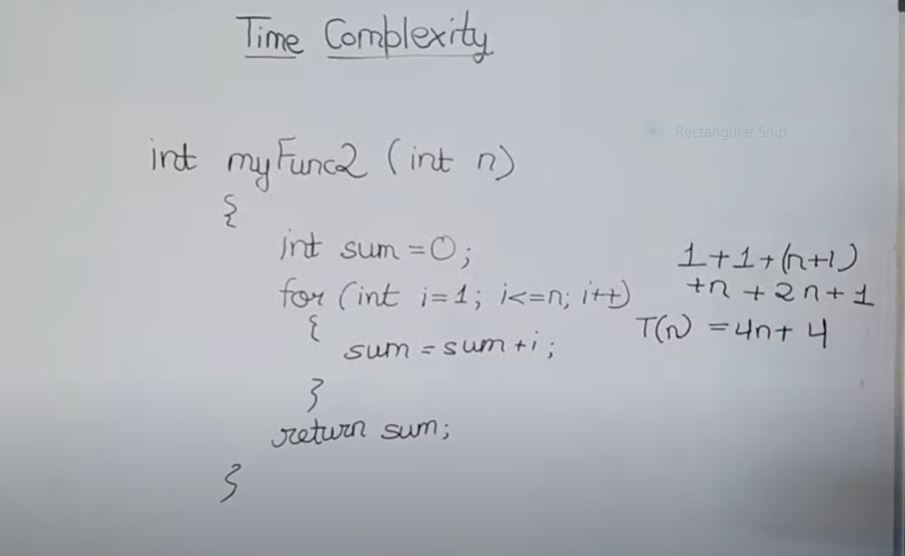 Time Complexity
Rectangular Snip
int myFunc2 (int n)
{
int sum = 0;
for (int i=1; i<=n; i++)
{
sum = sum + i;
}
return sum;
}
1+1+(n+1)
+n + 2n + 1
T(n) = 4n + 4